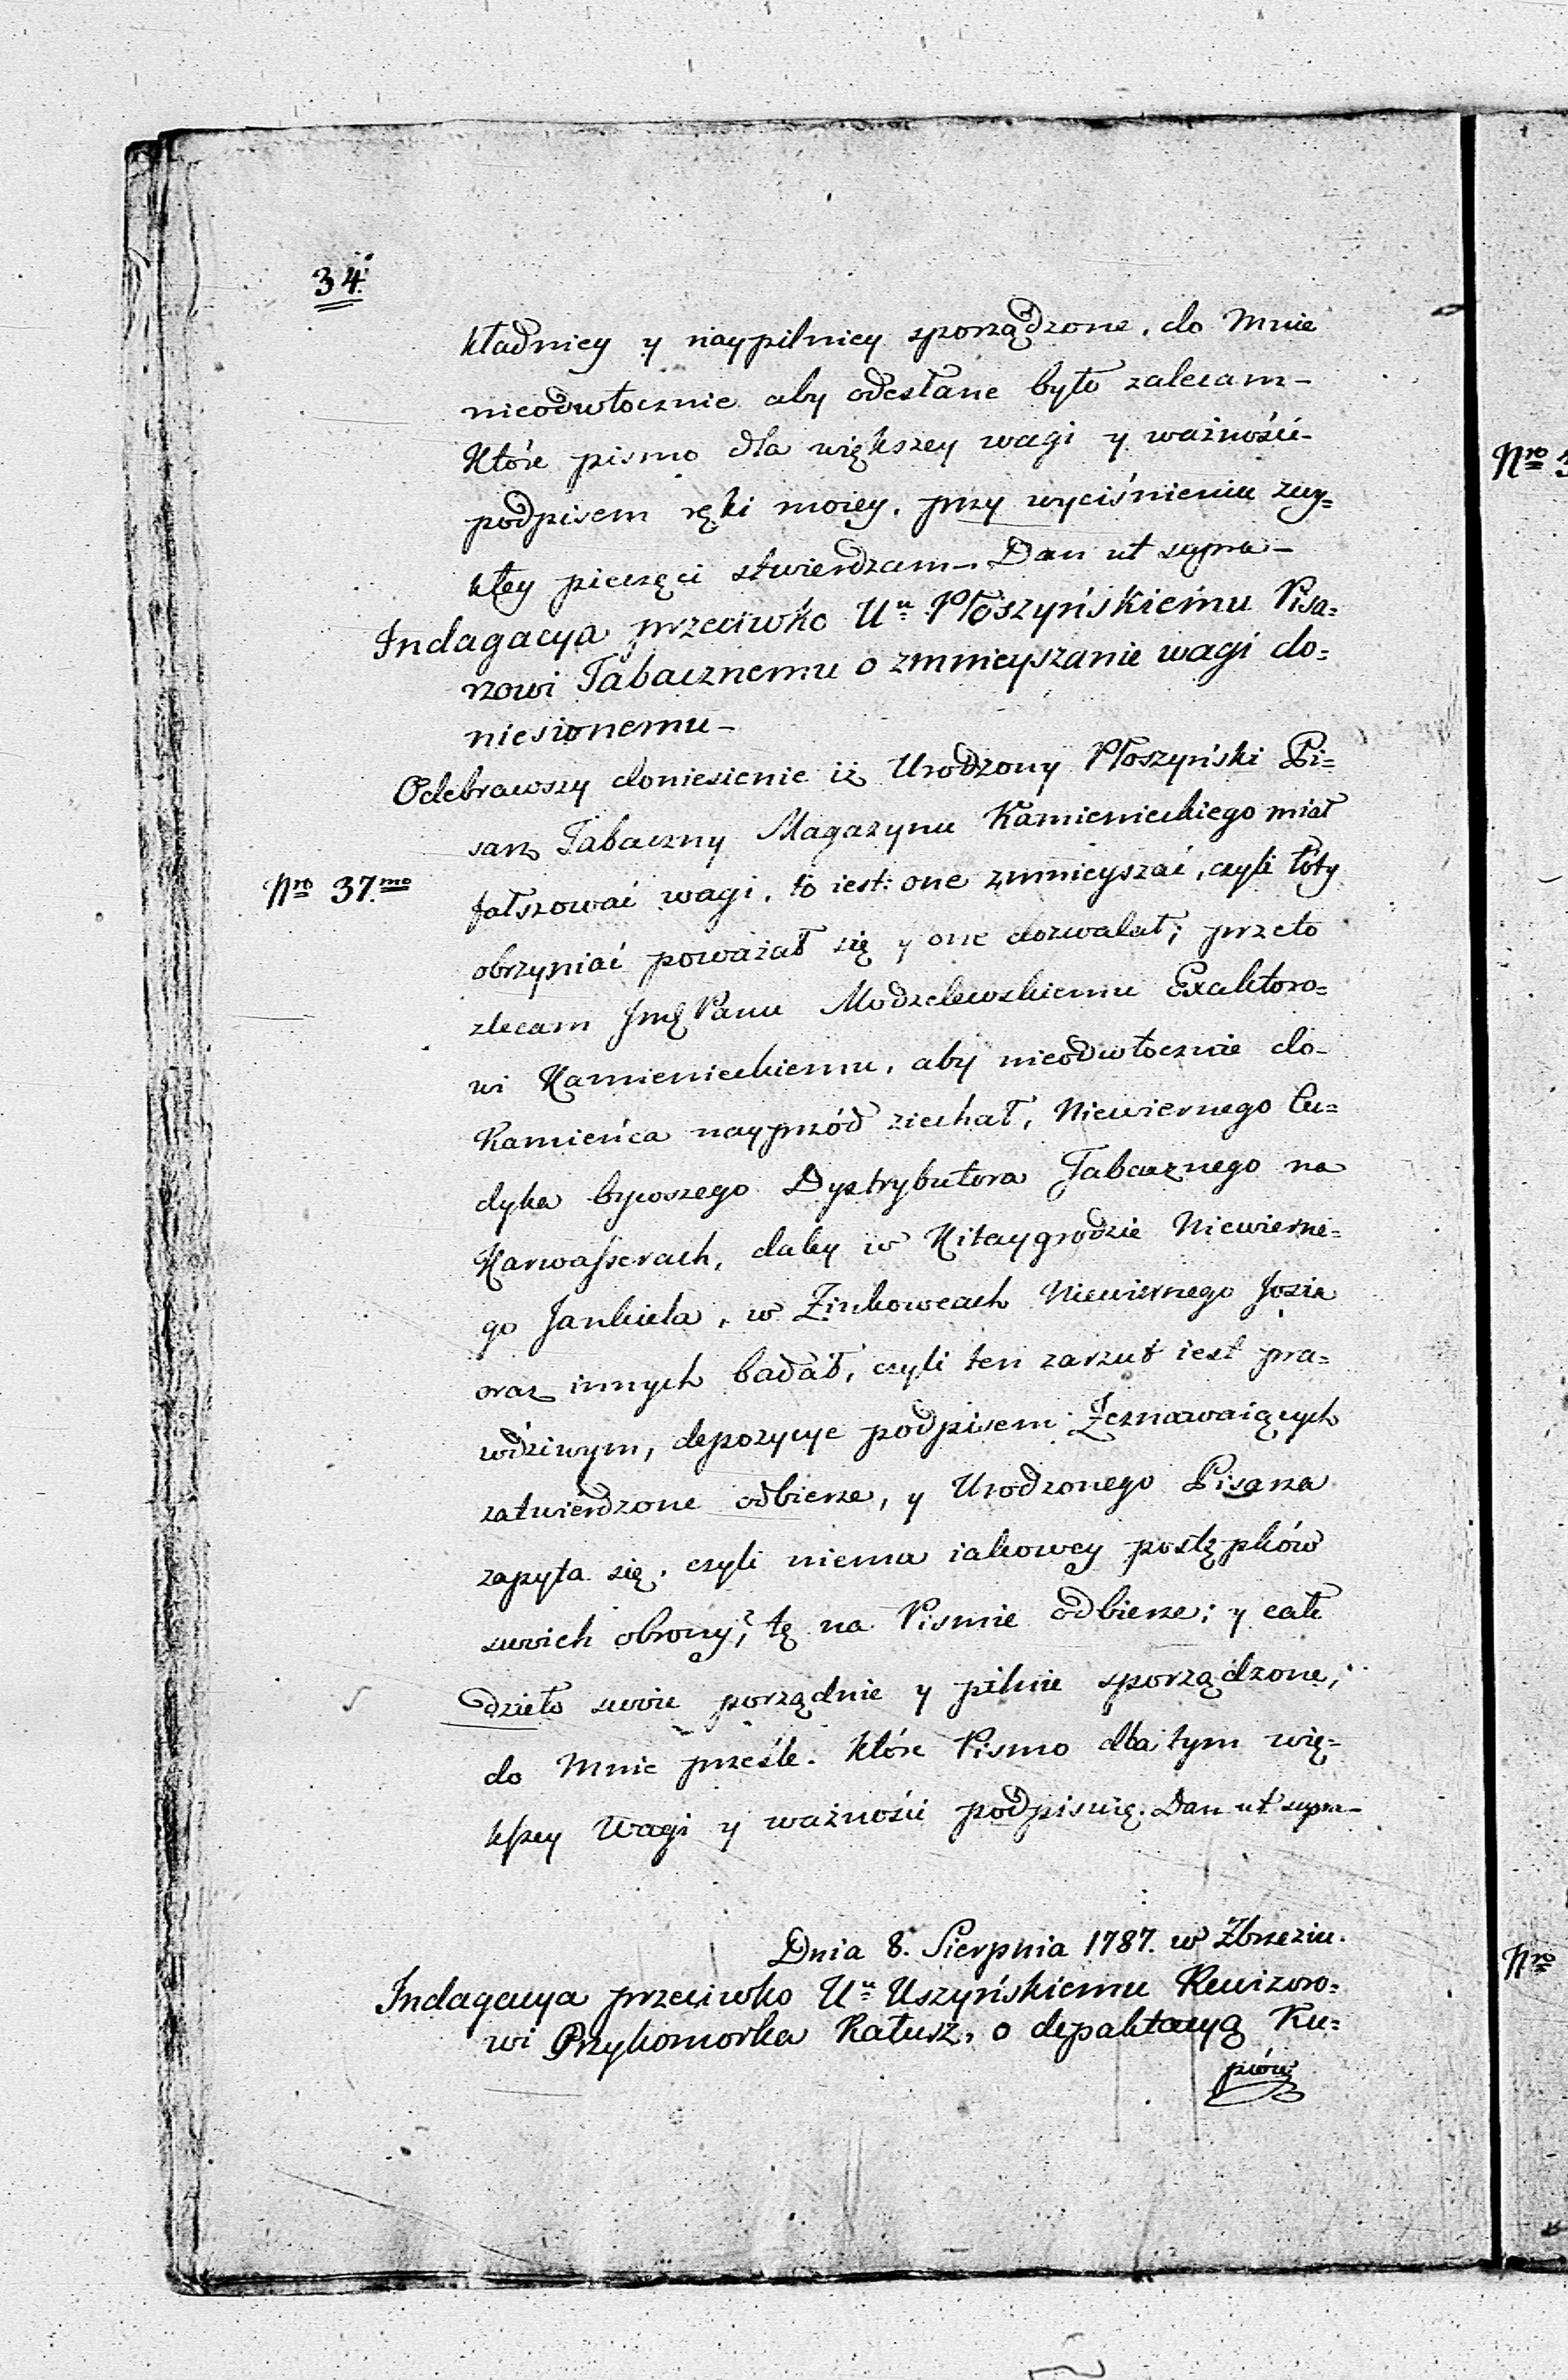 34.
kładniey y naypilniey sporządzone, do Mnie
nieodwłocznie aby odesłane było zalecam –
Które pismo dla większey wagi y ważności –
podpisem ręki moiey, przy wyciśnieniu zwy=
kłey pieczęci stwierdzam – Dan ut supra –
Indagacya przeciwko Uu Płoszyńskiemu Pisa=
rzowi Tabacznemu o zmnieyszanie wagi do=
niesionemu –
Odebrawszy doniesienie iż Urodzony Płoszyński Pi=
sarz Tabaczny Magazynu Kamienieckiego miał
Nro 37mo
fałszować wagi, to iest: one zmnieyszać, czyli łóty
obrzynać poważał się y one dozwalał; przeto
zlecam Jmć Panu Modzelewskiemu Exaktoro=
wi Kamienieckiemu, aby nieodwłocznie do –
Kamieńca nayprzód ziechał, Niewiernego Cu=
dyka bywszego Dystrybutora Tabacznego na
Karwasserach, daley w Kitaygrodzie Niewierne=
go Jankiela, w Zinkowcach Niewiernego Josia
oraz innych badał, czyli ten zarzut iest pra=
wdziwym, depozycye podpisem Zeznawaiących
zatwierdzone odbierze, y Urodzonego Pisarza
zapyta się, czyli niema iakowey postępków
swoich obrony?, tę na Pismie odbierze; y całe
dzieło swoie porządnie y pilnie sporządzone,
do Mnie prześle. które Pismo dla tym wię=
kszey Wagi y ważności podpisuię. Dan ut supra –
Dnia 8. Sierpnia 1787. w Zbrzeziu.
Indagacya przeciwko Uu Uszyńskiemu Rewizoro=
wi Przykomorka Ratusz, o depaktacyą Ku=
pców
Nro
Nro